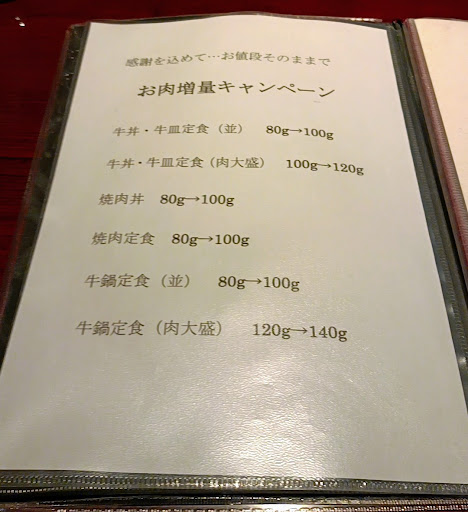 感謝を込めて…お値段そのままで
お肉増量キャンペーン
牛丼・牛皿定食（並） 80g→100g
牛丼・牛皿定食（肉大盛） 100g→120g
焼肉丼 80g→100g
焼肉定食 80g→100g
牛鍋定食（並） 80g→100g
牛鍋定食（肉大盛） 120g→140g